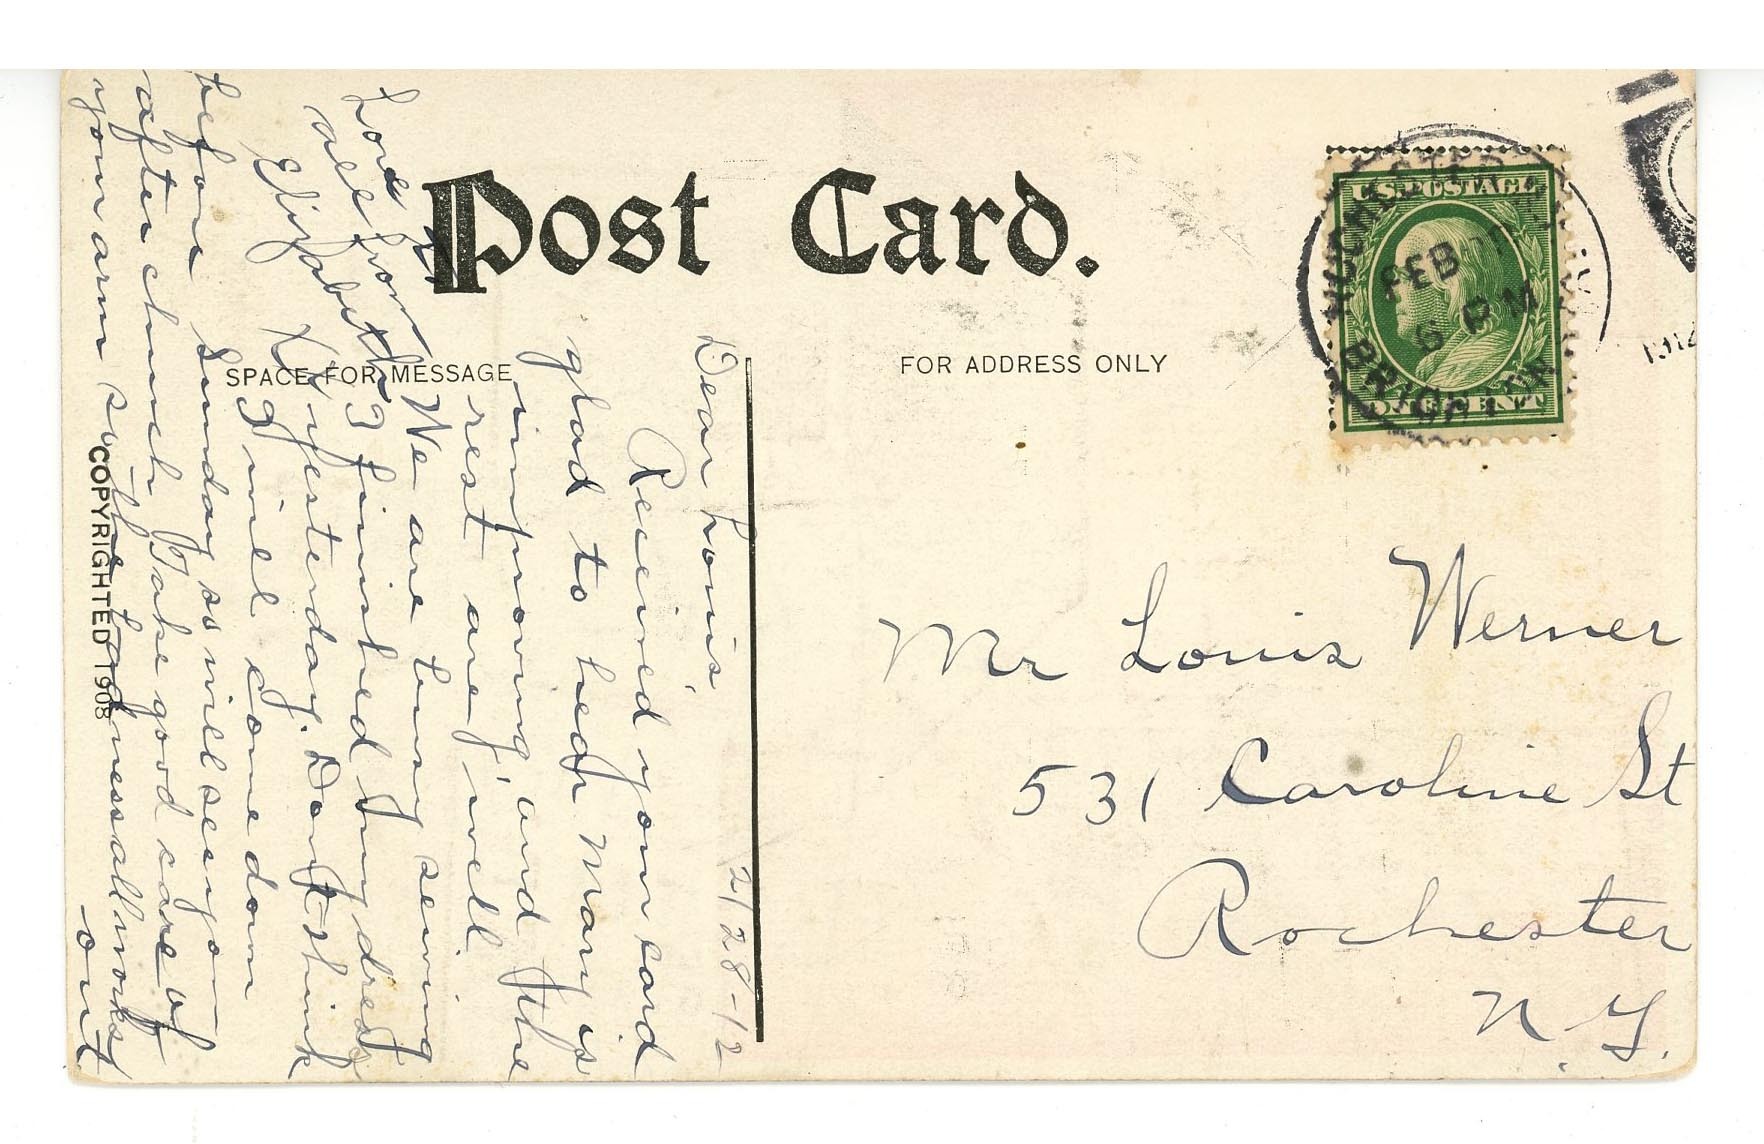 Post Card.
SPACE FOR MESSAGE
FOR ADDRESS ONLY
COPYRIGHTED 1908
U.S. POSTAGE
ONE CENT
ROCHESTER
FEB
6 PM
BRIGHTON
1912
Mr Louis Werner
531 Caroline St
Rochester
N. Y.
2/28-12
Dear Louis,
Received your card
glad to hear Mary is
improving, and the
rest are well.
We are busy sewing
I finished my dress
yesterday. Don't think
I will come down
Sunday so will see you
before
after church Take good care of
your arm so the soreness all works
out
Love from
all
Elizabeth